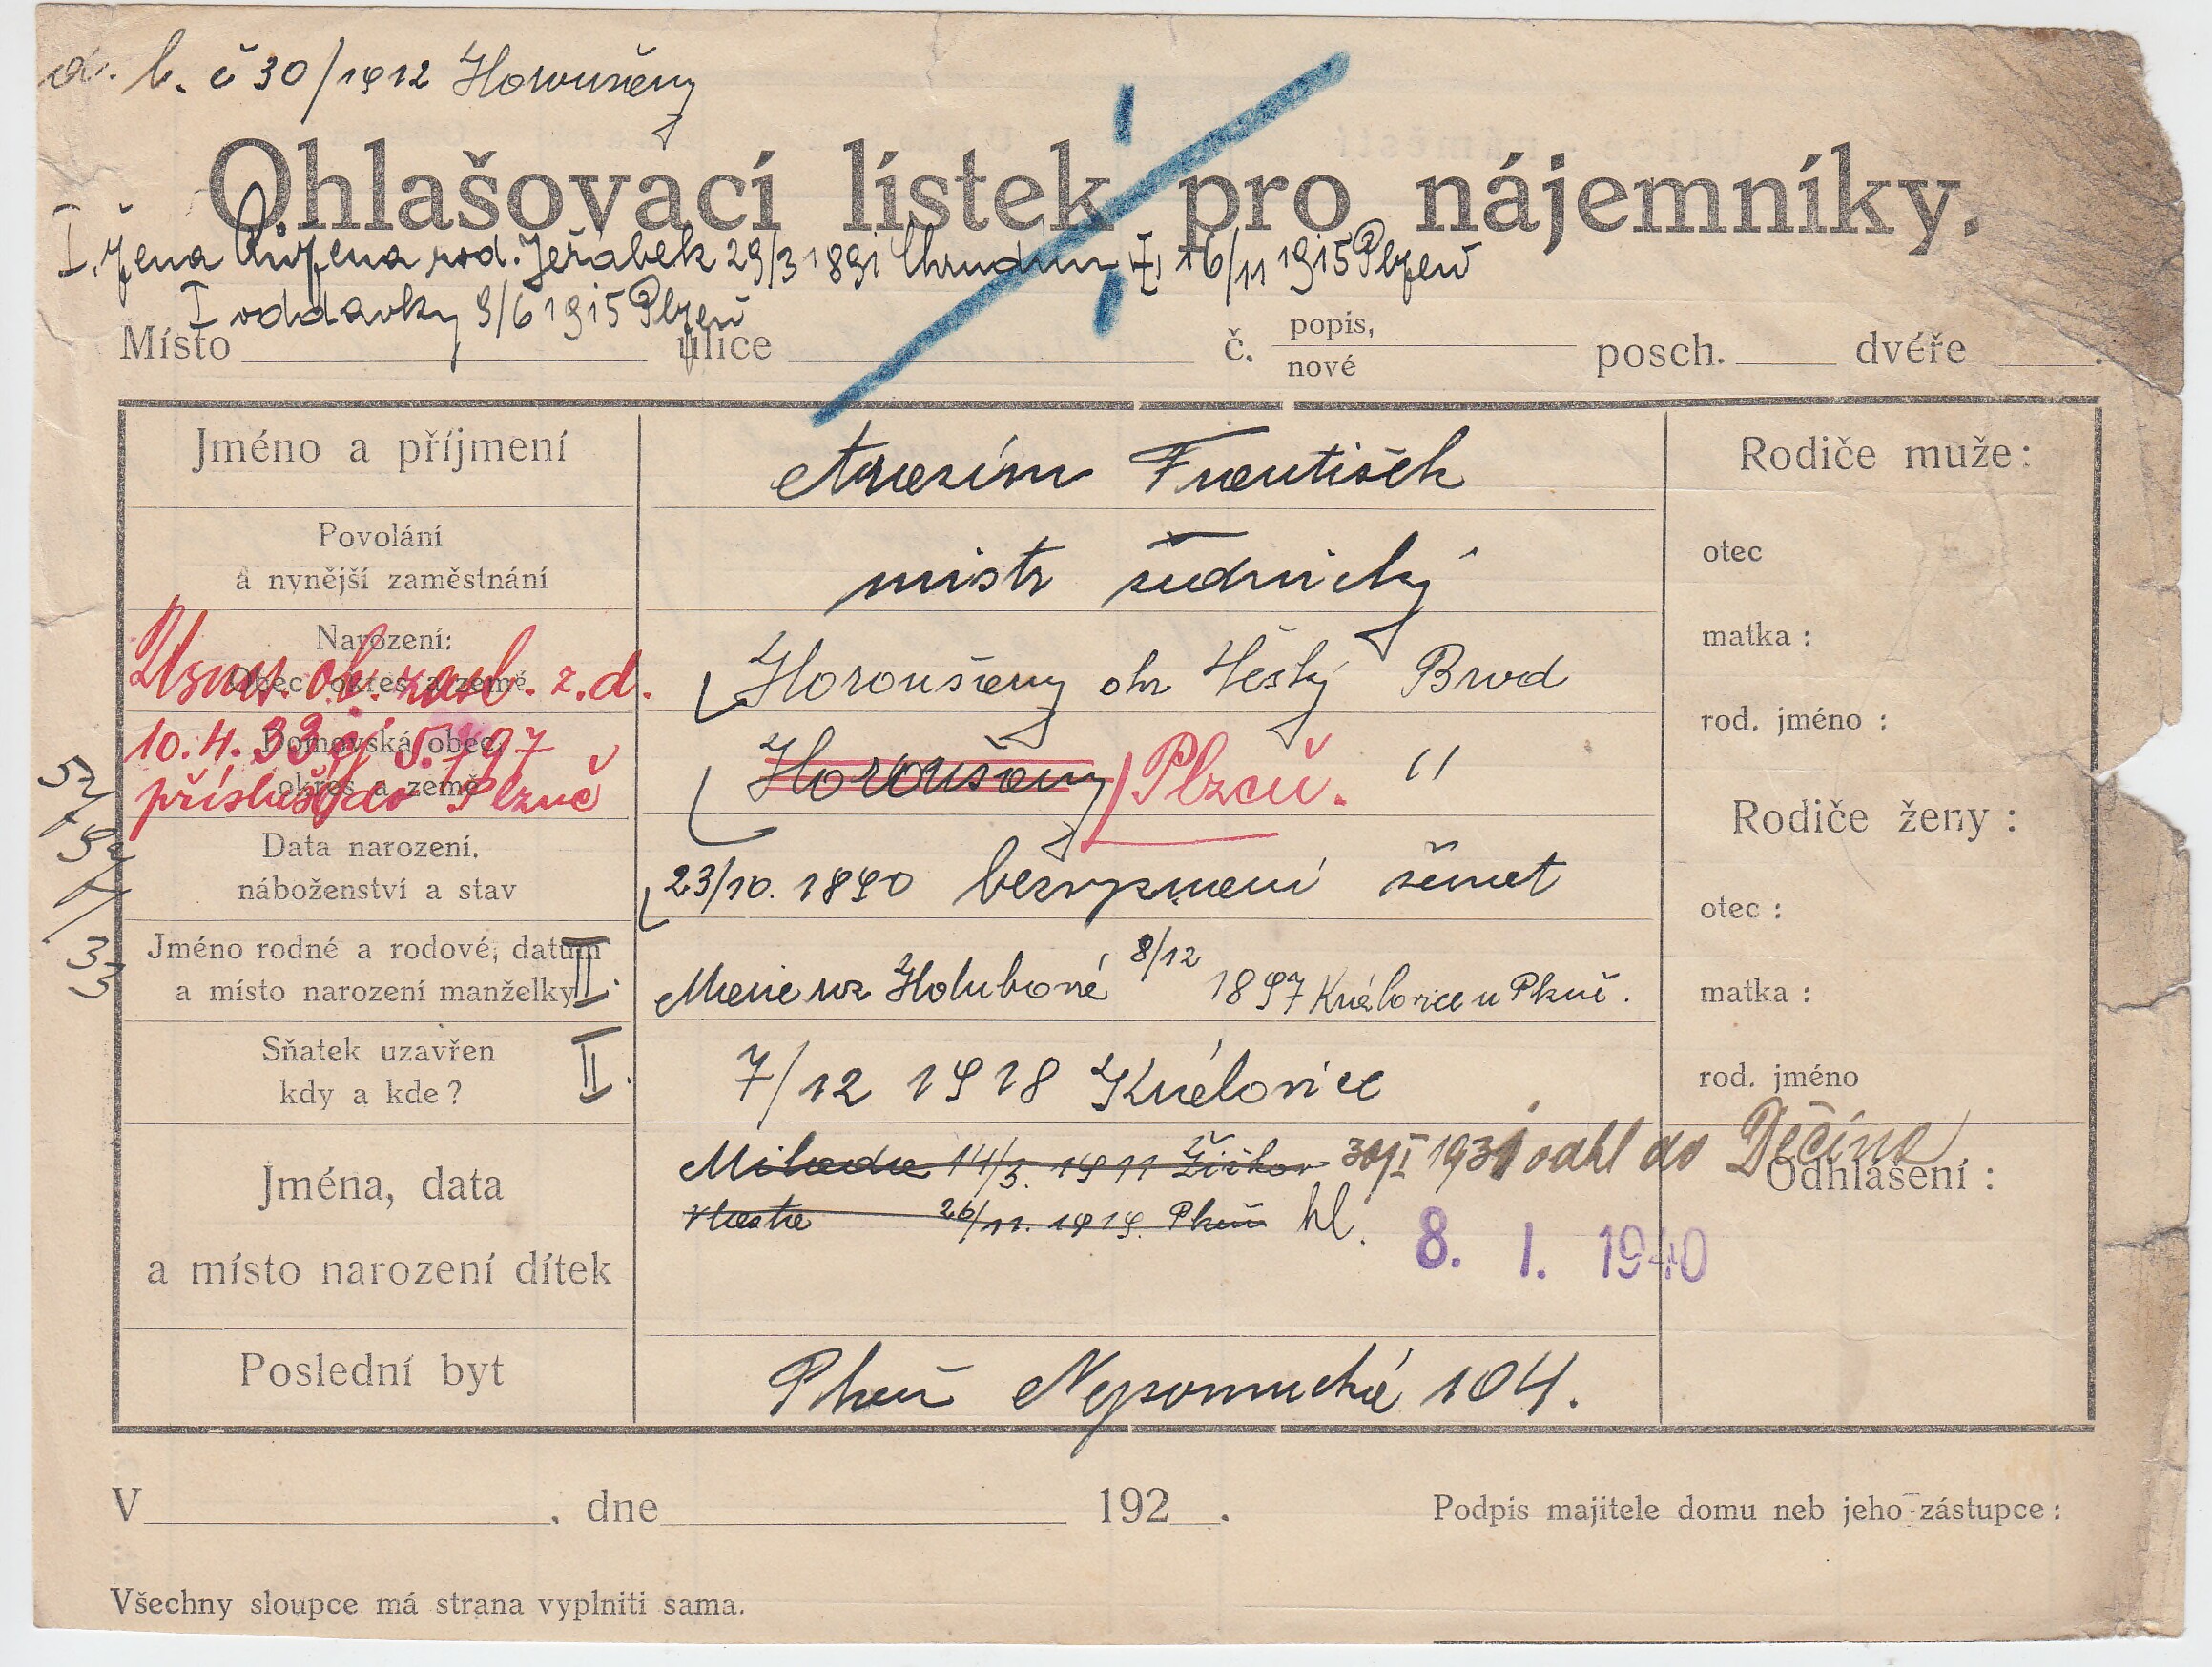 d. l. č 30/1912 Horoušany
Ohlašovací lístek pro nájemníky.
I. žena Růžena rod. Jeřábek 29/3 1891 Chrudim † 16/11 1915 Plzeň
I oddavky 9/6 1915 Plzeň
Místo ulice č. popis, nové posch. dveře .
Jméno a příjmení František Rodiče muže:
Povolání
a nynější zaměstnání mistr otec
Narození:
Obec, okres a země Horoušany okr Český Brod matka :
Usnes. ob. zast. z. d.
10. 4. 33 čj 5.797
přísluší do Plzně
Domovská obec,
okres a země Horoušany Plzeň. " rod. jméno :
52/
33
Rodiče ženy :
Data narození,
náboženství a stav 23/10. 1890 bezvyznání ženat otec :
Jméno rodné a rodové, datum
a místo narození manželky II. Marie roz Holubová 8/12 1897 Královice u Plzně. matka :
Sňatek uzavřen
kdy a kde? II. 7/12 1918 Královice rod. jméno
Jména, data
a místo narození dítek
Milada 14/3. 1911 Žižkov 30/I 1931 odhl do Děčína
Vlasta 26/11. 1919. Plzeň hl.
Odhlášení :
8. I. 1940
Poslední byt Plzeň Nepomucká 104.
V , dne 192 . Podpis majitele domu neb jeho zástupce :
Všechny sloupce má strana vyplniti sama.